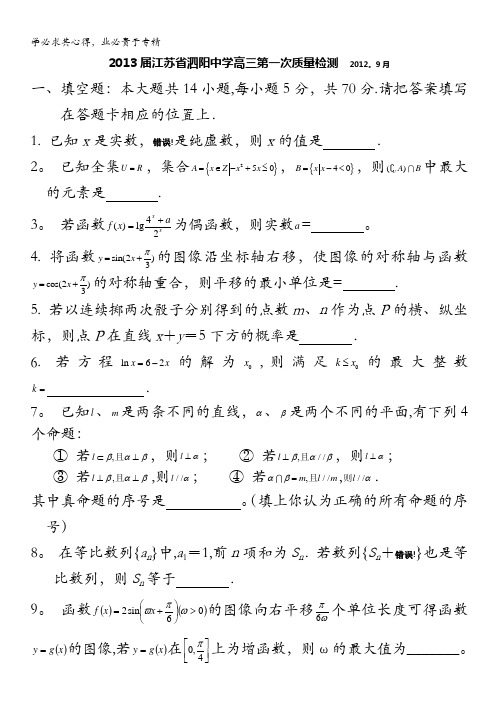 学必求其心得，业必贵于专精
2013届江苏省泗阳中学高三第一次质量检测 2012。9月
一、填空题：本大题共14小题,每小题5分，共70分.请把答案填写
在答题卡相应的位置上.
1. 已知x是实数，错误!是纯虚数，则x的值是 .
2。 已知全集U=R，集合A={x∈Z|-x²+5x≤0}，B={x|x-4<0}，则(∁ᵤA)∩B中最大
的元素是 .
3。 若函数f(x)=lg (4ˣ+a)/2ˣ 为偶函数，则实数a= 。
4. 将函数y=sin(2x+π/3)的图像沿坐标轴右移，使图像的对称轴与函数
y=cos(2x+π/3)的对称轴重合，则平移的最小单位是= .
5. 若以连续掷两次骰子分别得到的点数m、n作为点P的横、纵坐
标，则点P在直线x＋y＝5下方的概率是 .
6. 若方程ln x=6-2x的解为x₀,则满足k≤x₀的最大整数
k= .
7。 已知l、m是两条不同的直线，α、β是两个不同的平面,有下列4
个命题：
① 若l⊂β,且α⊥β，则l⊥α； ② 若l⊥β,且α//β，则l⊥α；
③ 若l⊥β,且α⊥β,则l//α； ④ 若α∩β=m,且l//m,则l//α.
其中真命题的序号是 。（填上你认为正确的所有命题的序
号）
8。 在等比数列{aₙ}中,a₁＝1,前n项和为Sₙ. 若数列{Sₙ＋错误!}也是等
比数列，则Sₙ等于 .
9。 函数f(x)=2sin(ϖx+π/6)(ω>0)的图像向右平移π/6ω个单位长度可得函数
y=g(x)的图像,若y=g(x)在[0,π/4]上为增函数，则ω的最大值为________。